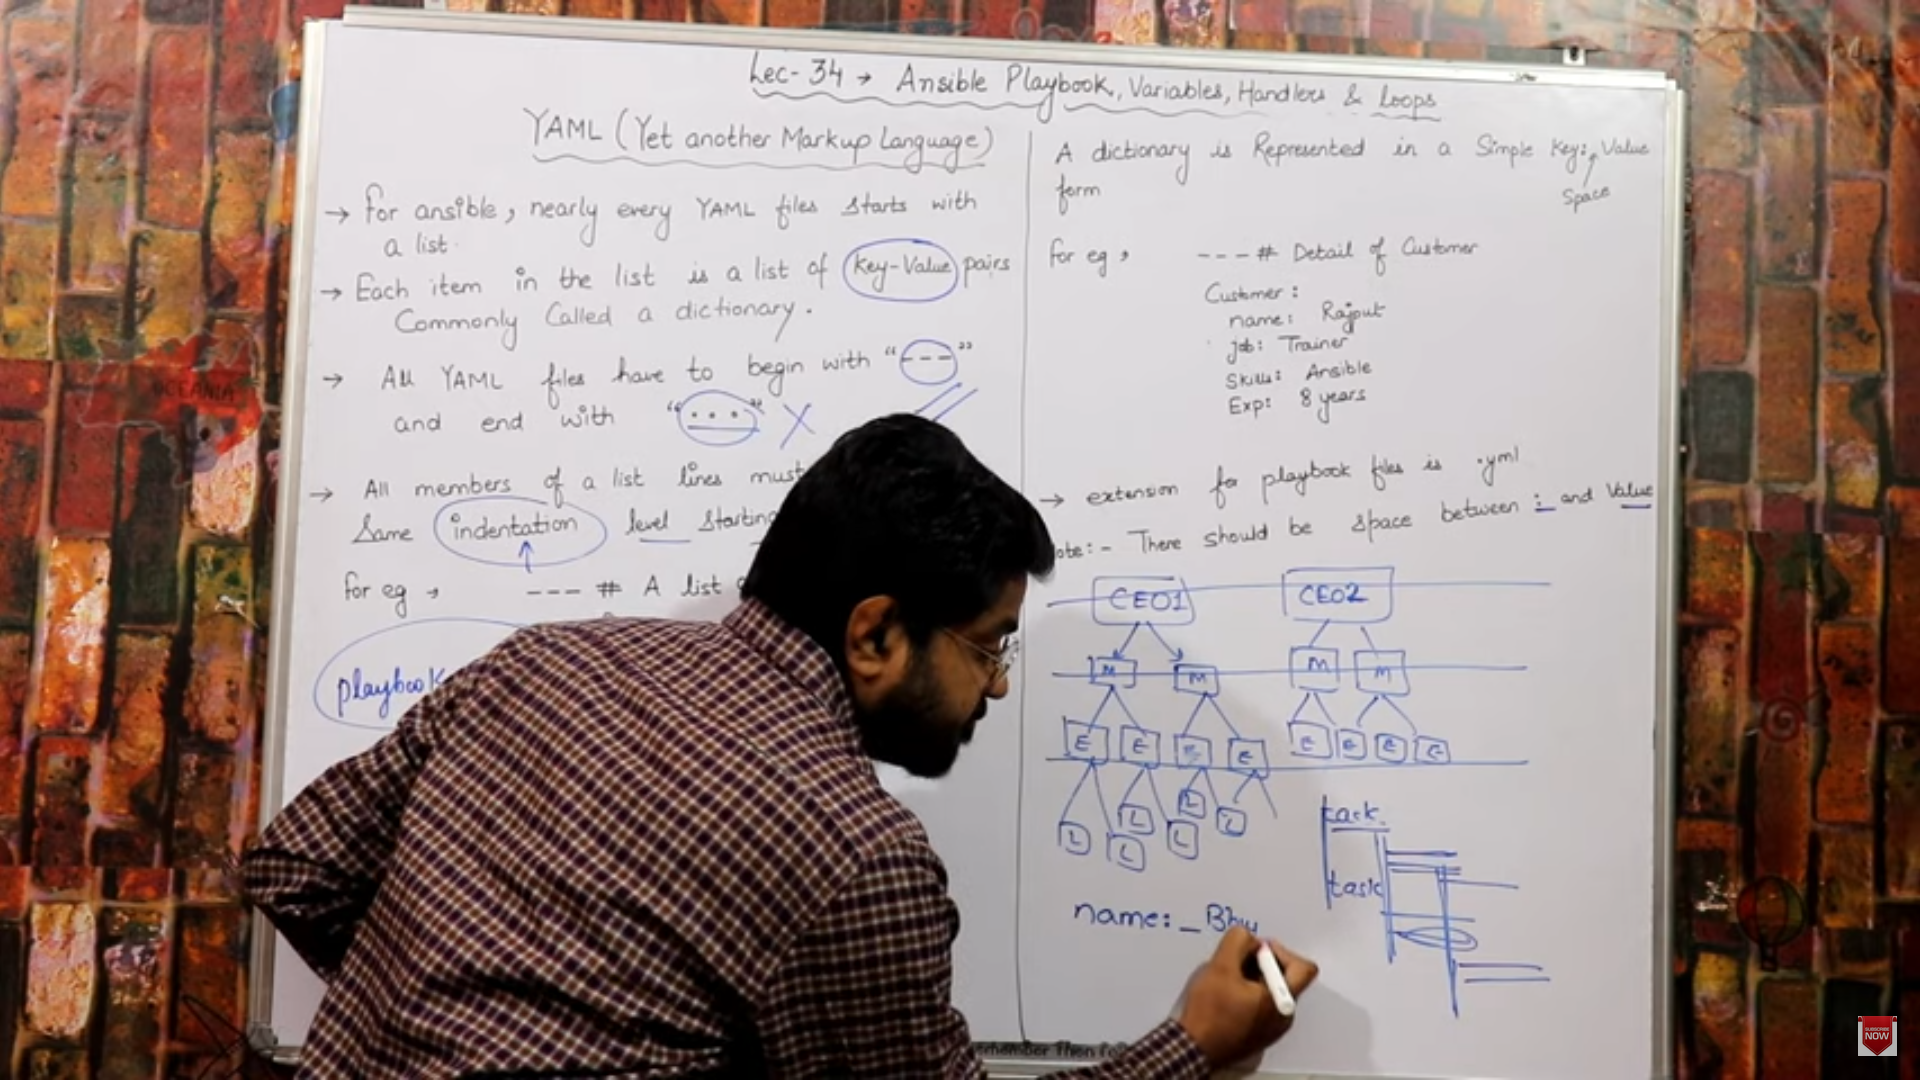 Lec-34 → Ansible Playbook, Variables, Handlers & Loops
YAML (Yet another Markup Language)
→ For ansible, nearly every YAML files starts with
a list.
→ Each item in the list is a list of Key-Value pairs
Commonly Called a dictionary.
→ All YAML files have to begin with "---"
and end with "..." X
→ All members of a list lines must
Same indentation level starting
for eg → --- # A list
playbook
A dictionary is Represented in a Simple Key: Value
form
Space
for eg → --- # Detail of Customer
Customer:
name: Rajput
job: Trainer
Skills: Ansible
Exp: 8 years
→ extension for playbook files is .yml
ote:- There should be space between : and Value
CEO1 CEO2
M M M M
E E E E E E E E
L L L L L L
task
task
name:_Bhu
OCEANIA
SUBSCRIBE
NOW